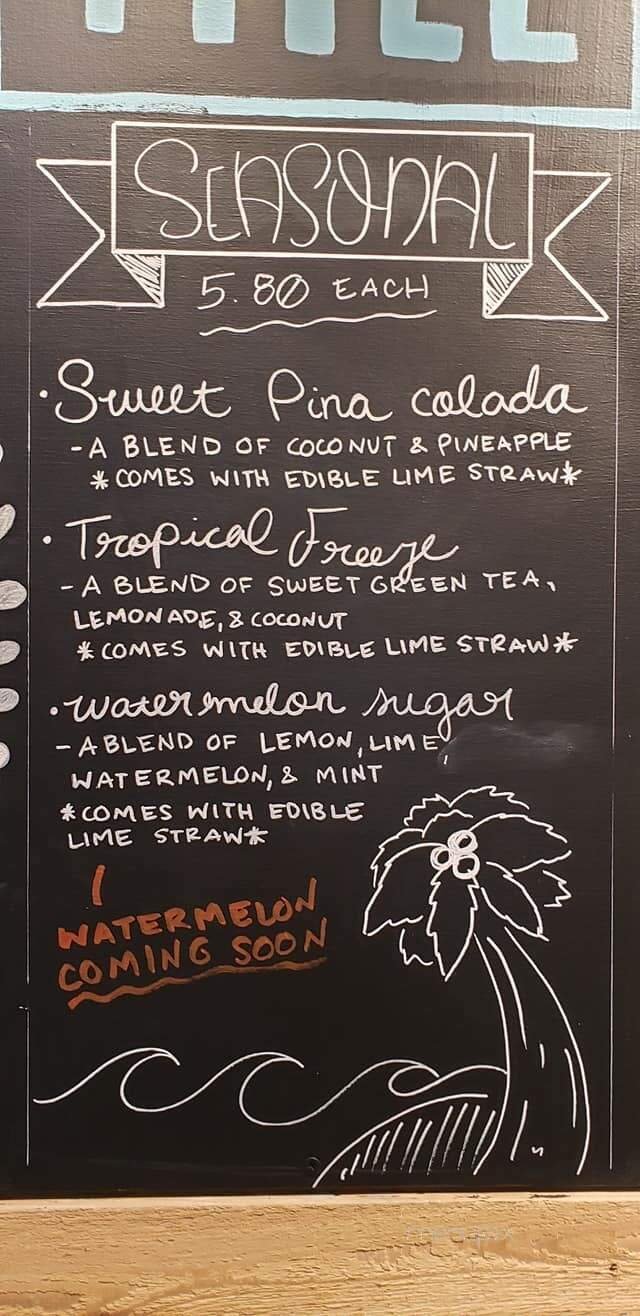 SEASONAL
5.80 EACH
·Sweet Pina colada
-A BLEND OF COCONUT & PINEAPPLE
* COMES WITH EDIBLE LIME STRAW*
·Tropical Freeze
-A BLEND OF SWEET GREEN TEA,
LEMONADE, & COCONUT
* COMES WITH EDIBLE LIME STRAW*
·watermelon sugar
-A BLEND OF LEMON, LIME,
WATERMELON, & MINT
* COMES WITH EDIBLE
LIME STRAW*
WATERMELON
COMING SOON